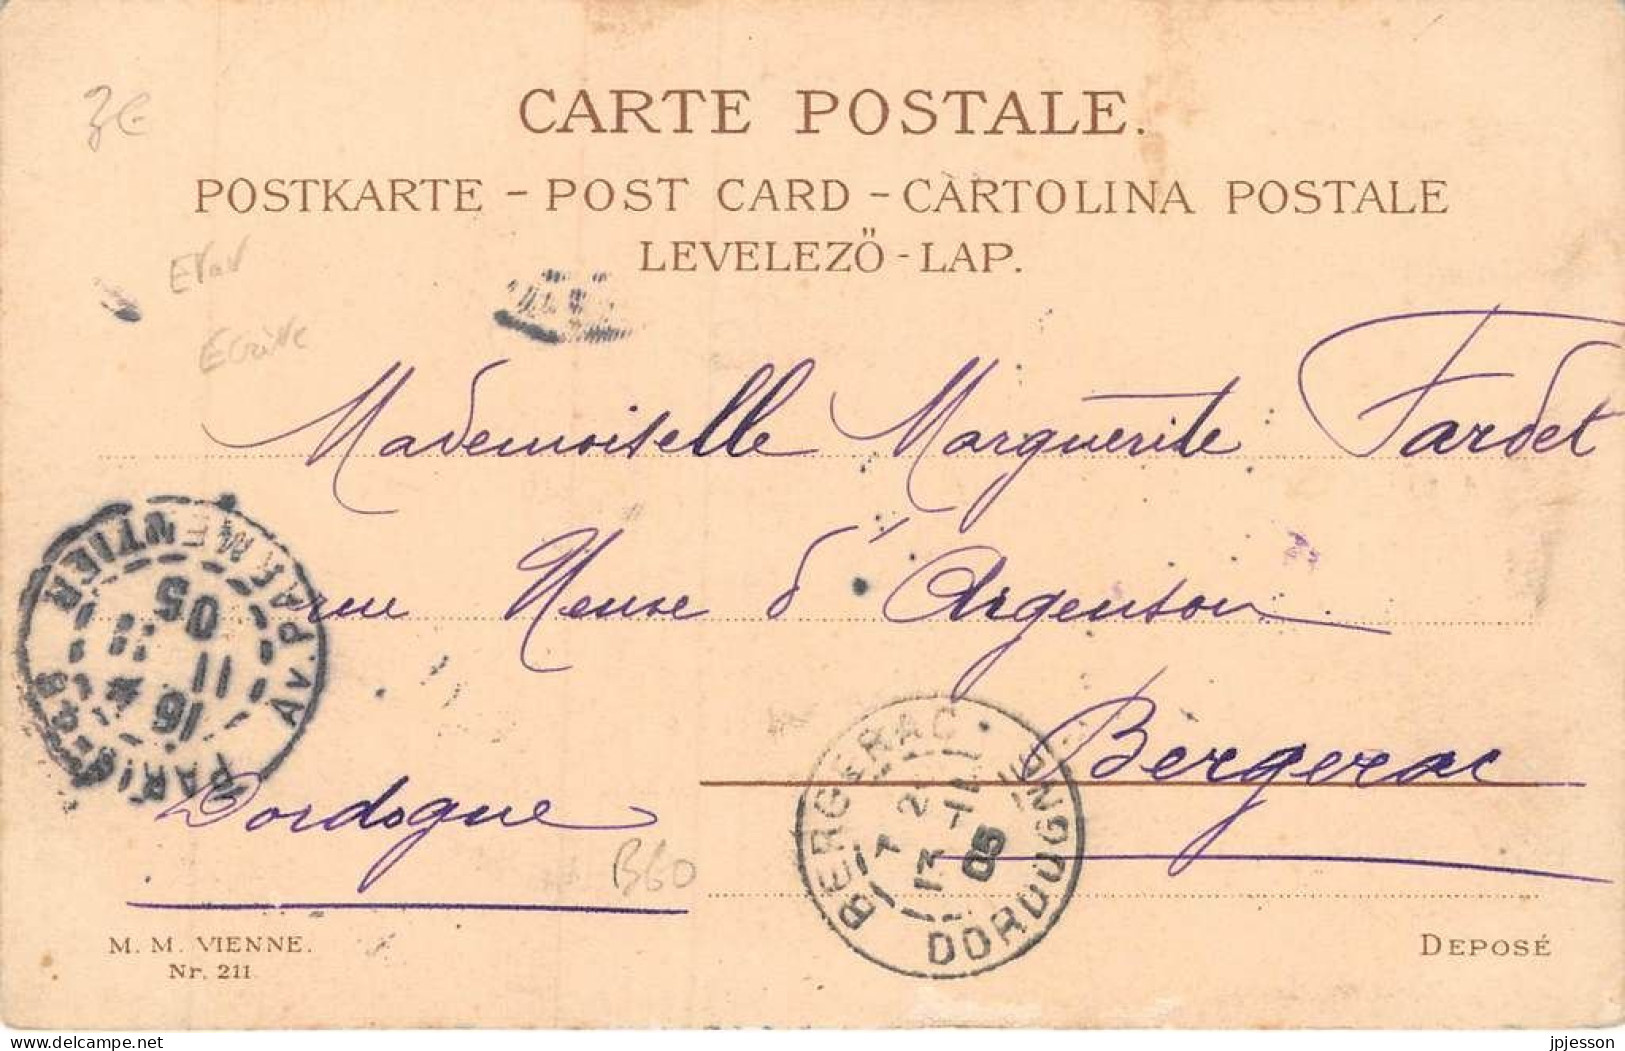 3€
CARTE POSTALE.
POSTKARTE – POST CARD – CARTOLINA POSTALE
LEVELEZŐ - LAP.
Mademoiselle Marguerite Fardet
rue Neuve d'Argenson
Bergerac
Dordogne
PARIS
AV. PARMENTIER
16
11
05
BERGERAC
DORDOGNE
13 -11
05
B60
M. M. VIENNE.
Nr. 211
DEPOSÉ
delcampe.net
jpjesson